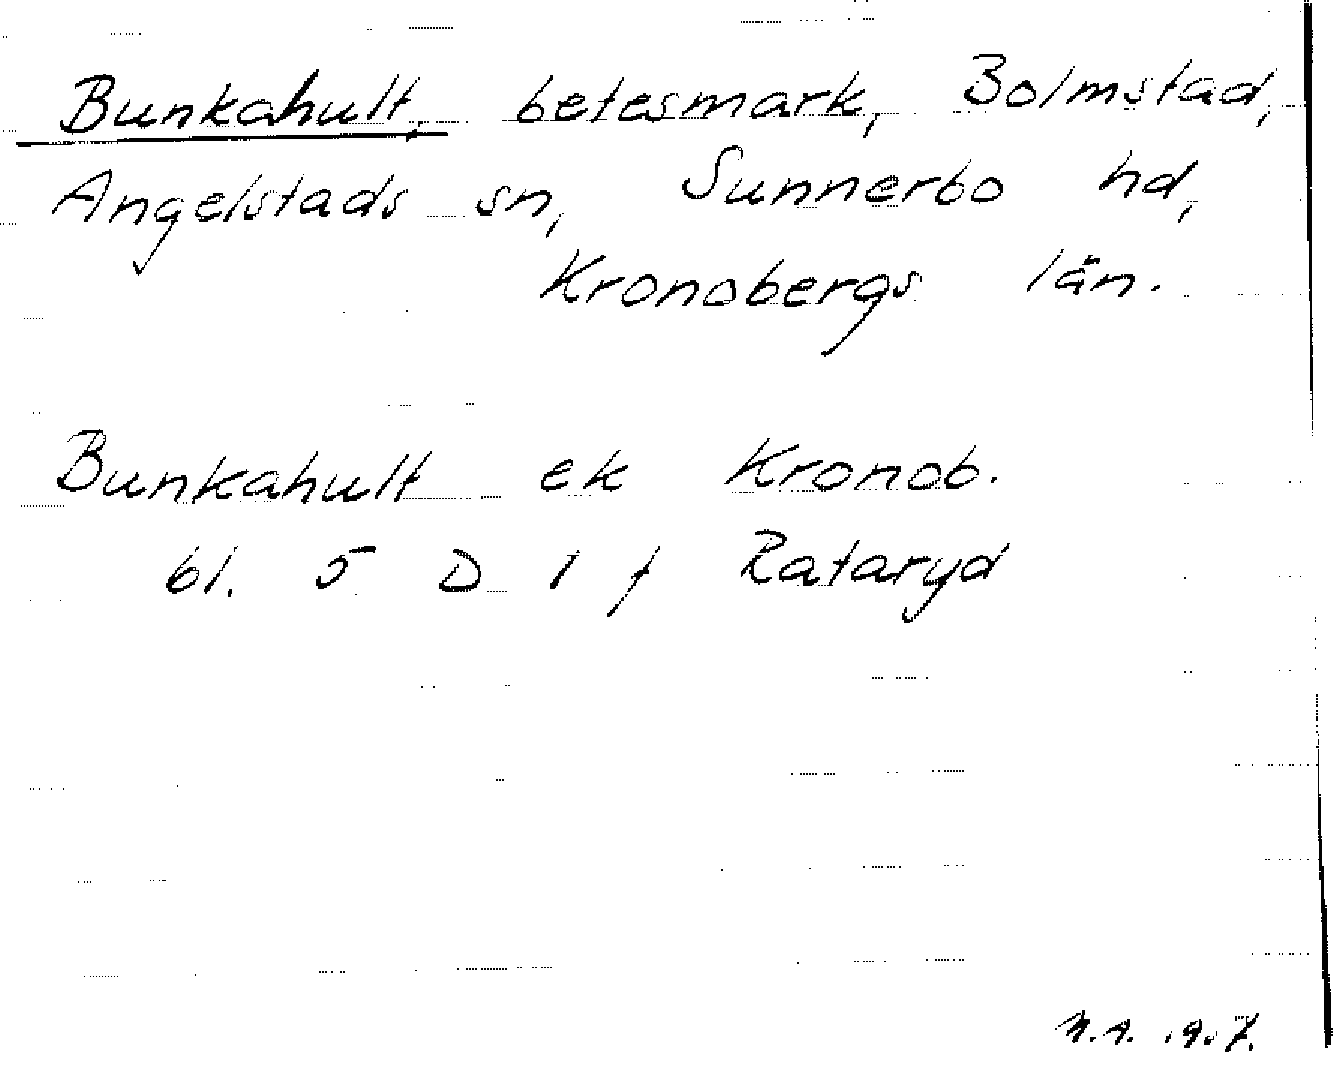 Bunkahult, betesmark, Bolmstad,
Angelstads sn, Sunnerbo hd,
Kronobergs län.
Bunkahult ek Kronob.
bl. 5 D 1 f Rataryd